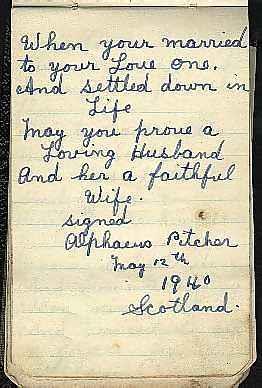 When your married
to your Love one.
And settled down in
Life
May you prove a
Loving Husband
And her a faithful
Wife.
signed
Alphaeus Pitcher
May 12th
1940
Scotland.